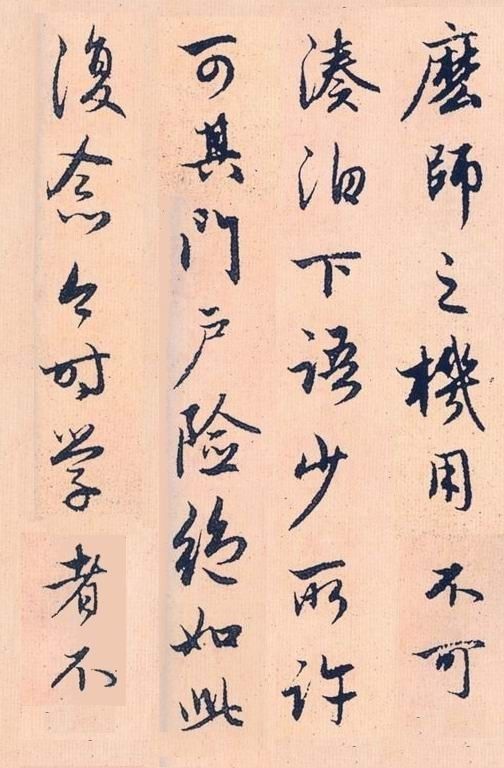 麽師之機用不可
湊泊下語少所許
可其門户险絶如此
復念今时学者不